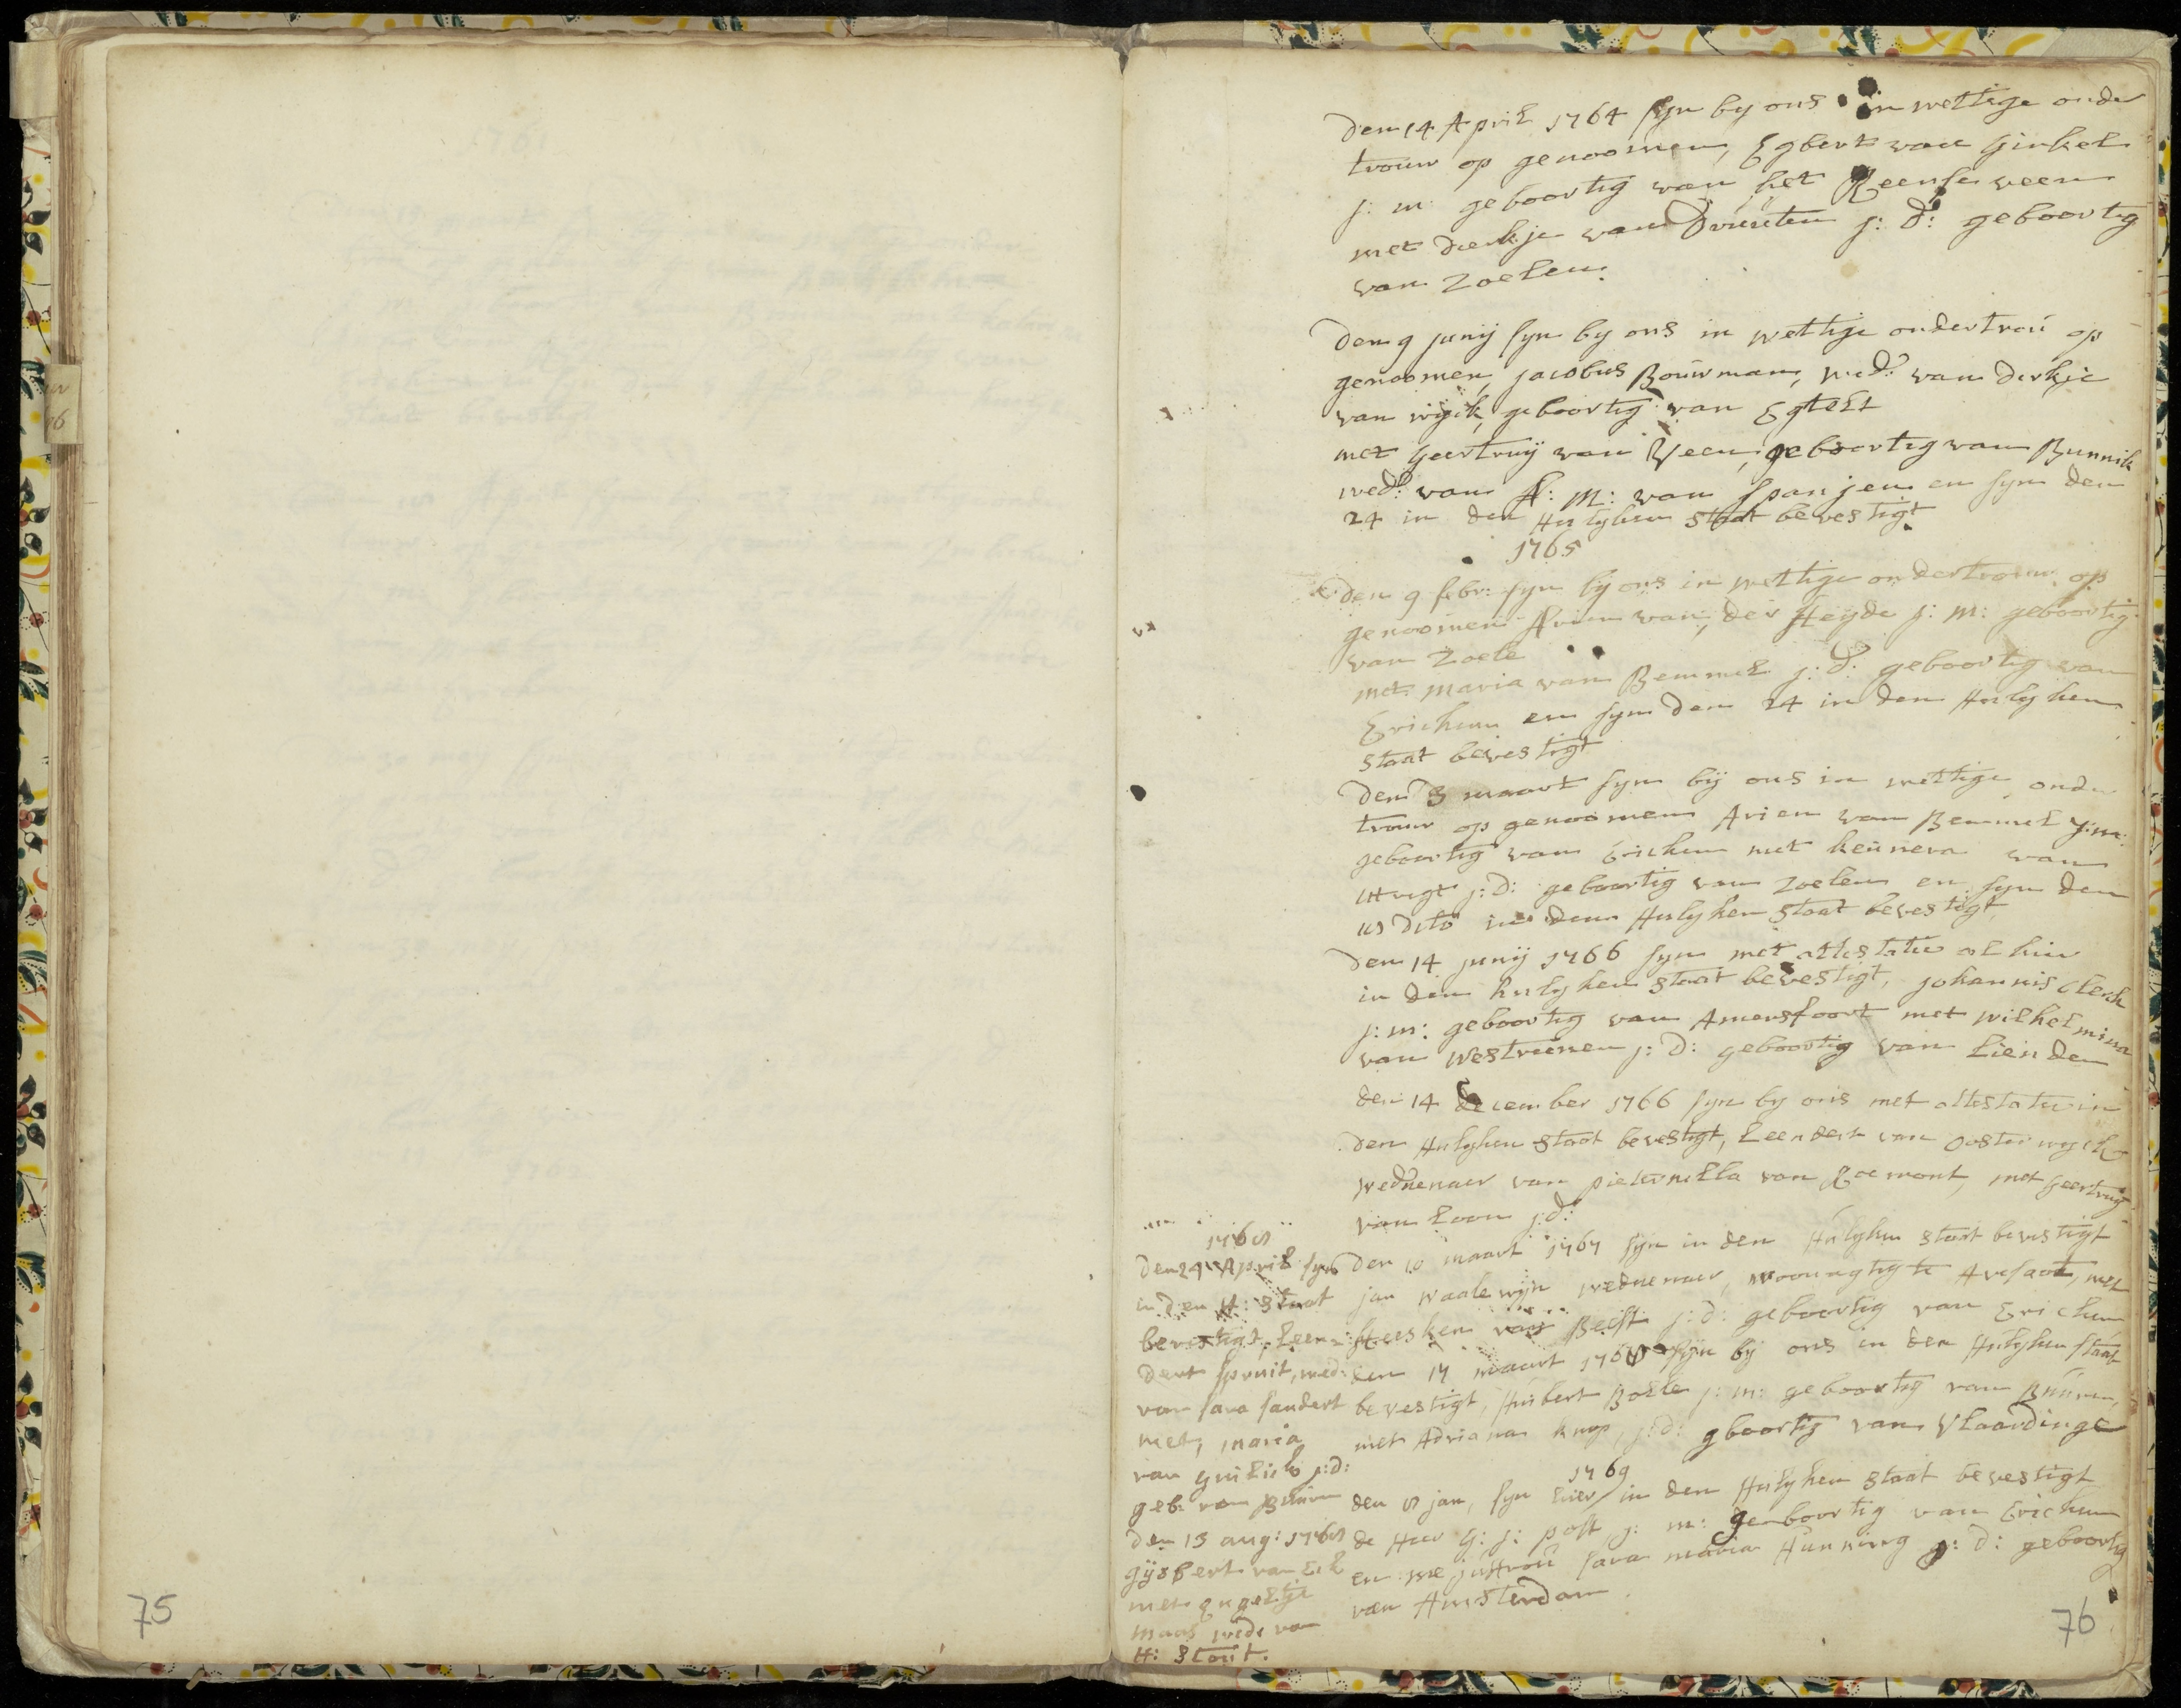 75
Den 14 April 1764 syn by ons in wettige onder
trouw op genoomen, Egbert van Ginkel
j: m: geboortig van het Reense veen
met dirkje van Druuten j: d: geboortig
van Zoelen.
Den 9 junij syn by ons in wettige ondertroú op
genoomen, jacobus Boúwman, wed: van dirkje
van wijck, geboortig van Egtelt
met Geertruij van Veen, geboortig van Bunnik
wed: van A: M: van Spanjen en syn den
24 in den Huslyken staat bevestigt
1765
den 9 febr: syn bij ons in wettige ondertrouw op
genoomen Arien van der Heyde j: m: geboortig
van Zoele
met maria van Bemmel j: d: geboortig van
Erichem en syn den 24 in den Huslyken
staat bevestigt
Den 8 maart syn bij ons in wettige onder
trouw op genoomen Arien van Bemmel j: m:
geboortig van Erichem met van
j: D: geboortig van Zoelen en syn den
dito in den Huslyken staat bevestigt
Den 14 junij 1766 syn met attestatie al hier
in den huslyken staat bevestigt, johannis
j: m: geboortig van Amersfoort met wilhelmina
van Westreenen j: D: geboortig van Lienden
den 14 december 1766 syn by ons met attestatie in
den Huslyken staat bevestigt, Leendert van Oosterwyck
weduenaer van pieternella van Roemont, met geertruy
van Loon j: d:
den 10 maart 1767 syn in den Huslyken staat bevestigt
jan waalewijn weduenaer, met
Heesken van Beest j: d: geboortig van Erichem
den 17 maart 1768 syn bij ons in den Huslyken staat
bevestigt, Huibert Bolle j: m: geboortig van Búúren,
met Adriana knop, j: d: gboortig van Vlaardinge
1769
den 8 jan, syn hier in den Huslyken staat bevestigt
de Heer G: j: post j: m: geboortig van Erichem
en me júffroú sara maria Hunning j: D: geboortig
van Amsterdam.
1768
Den 24 April syn
in den H: staat
bevestigt, Leen-
dert spruit, wed:
van sara sandert
met, maria
van j: d:
geb: van Búúren
Den 13 aug: 1768
gijsbert van Eck
met engeltje
maas wede van
H: Stout.
76